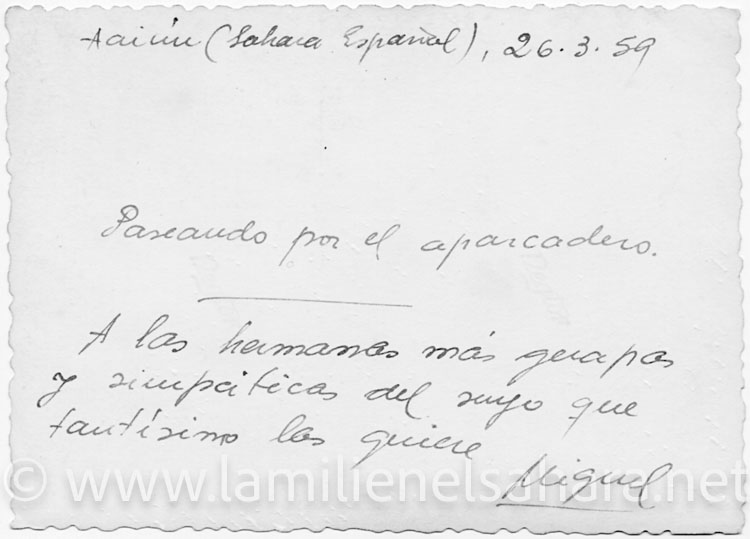 Aaiún (Sahara Español), 26.3.59
Paseando por el aparcadero.
A las hermanas más guapas
y simpáticas del suyo que
tantísimo las quiere
Miguel
© www.lamilienelsahara.net